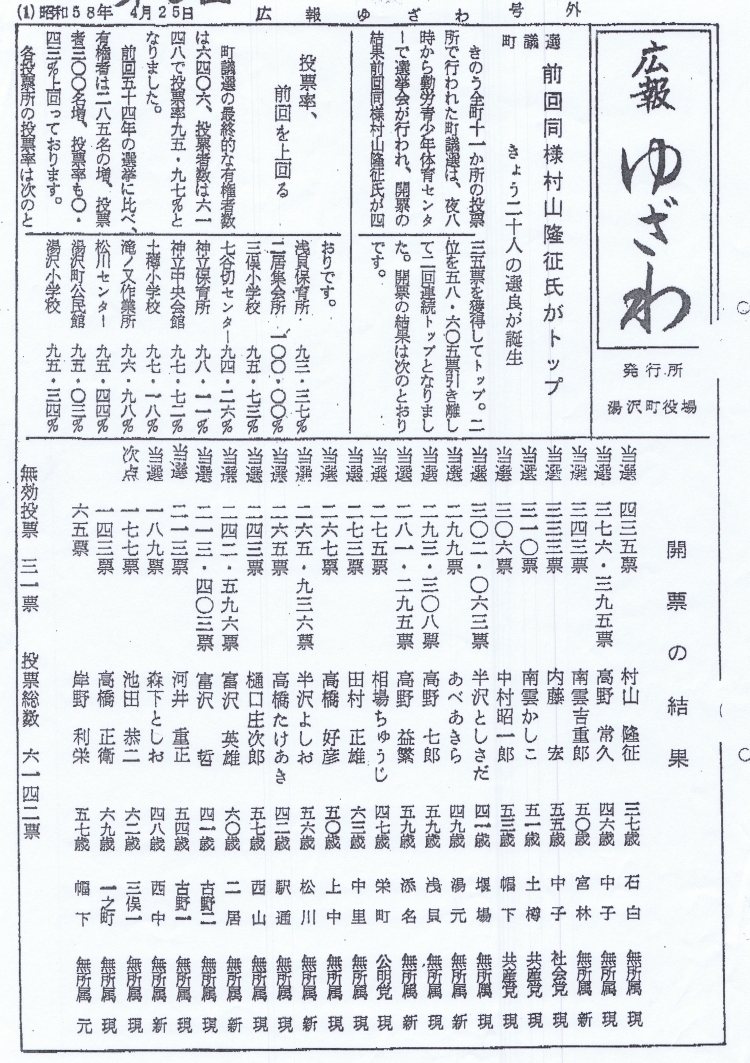 (1) 昭和58年 4月25日 広報ゆざわ 号外
広報
ゆざわ
発行所
湯沢町役場
町議選 前回同様村山隆征氏がトップ
きょう二十人の選良が誕生
きのう全町十一か所の投票
所で行われた町議選は、夜八
時から勤労青少年体育センタ
ーで選挙会が行われ、開票の
結果前回同様村山隆征氏が四
三五票を獲得してトップ。二
位を五八・六〇五票引き離し
て二回連続トップとなりまし
た。開票の結果は次のとおり
です。
投票率、
前回を上回る
町議選の最終的な有権者数
は六四〇六、投票者数は六一
四八で投票率九五・九七%と
なりました。
前回五十四年の選挙に比べ、
有権者は二八五名の増、投票
者三〇〇名増、投票率も〇・
四三%上回っております。
各投票所の投票率は次のと
おりです。
浅貝保育所 九三・三七%
二居集会所 一〇〇・〇〇%
三俣小学校 九五・七三%
七谷切センター 九四・二六%
神立保育所 九八・一一%
神立中央会館 九七・七二%
土樽小学校 九七・一八%
滝ノ又作業所 九六・九八%
松川センター 九五・四四%
湯沢町公民館 九五・〇三%
湯沢小学校 九五・三四%
開票の結果
当選 四三五票 村山 隆征 三七歳 石白 無所属 現
当選 三七六・三九五票 高野 常久 四六歳 中子 無所属 現
当選 三四三票 南雲吉重郎 五〇歳 宮林 無所属 新
当選 三三三票 内藤 宏 五五歳 中子 社会党 現
当選 三一〇票 南雲かしこ 五一歳 土樽 共産党 現
当選 三〇六票 中村昭一郎 五三歳 幅下 共産党 現
当選 三〇二・〇六三票 半沢としさだ 四一歳 堰場 無所属 現
当選 二九九票 あべあきら 四九歳 湯元 無所属 新
当選 二九三・三〇八票 高野 七郎 五九歳 浅貝 無所属 現
当選 二八一・二九五票 高野 益繁 五九歳 添名 無所属 新
当選 二七五票 相場ちゅうじ 四七歳 栄町 公明党 現
当選 二七三票 田村 正雄 六三歳 中里 無所属 現
当選 二六七票 高橋 好彦 五〇歳 上中 無所属 現
当選 二六五・九三六票 半沢よしお 五六歳 松川 無所属 新
当選 二六五票 高橋たけあき 四二歳 駅通 無所属 現
当選 二四三票 樋口庄次郎 五七歳 西山 無所属 現
当選 二四二・五九六票 富沢 英雄 六〇歳 二居 無所属 新
当選 二一三・四〇三票 富沢 哲 四一歳 古野二 無所属 現
当選 二一三票 河井 重正 五四歳 古野一 無所属 現
当選 一八九票 森下としお 四八歳 西中 無所属 新
次点 一七七票 池田 恭二 六二歳 三俣一 無所属 現
一四三票 高橋 正衛 六九歳 一之町 無所属 現
六五票 岸野 利栄 五七歳 幅下 無所属 元
無効投票 三一票 投票総数 六一四二票